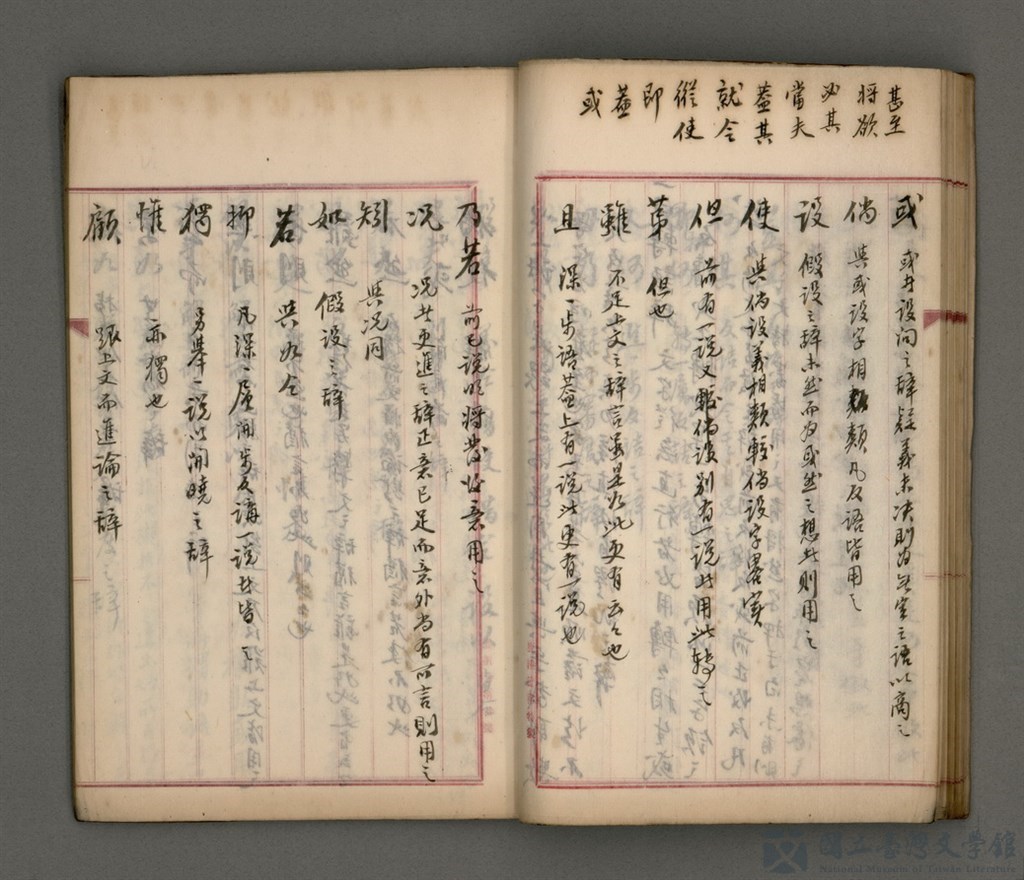 甚至
將欲
必其
當夫
蓋其
就令
縱使
即
蓋
或
或 或者設問之辞疑義未决則為無定之語以商之
倘 與或設字相類凡反語皆用之
設 假設之辞未然而為或然之想此則用之
使 與倘設義相類較倘設字畧實
但 前有一說又驟倘設别有一說此用此轉之
第 但也
雖 不足上文之辞言虽是如此更有云云也
且 深一步語蓋上有一說此更有一說也
乃若 前已說明將發後意用之
况 况此更進之辞正意已足而意外尚有所言則用之
矧 與况同
如 假設之辞
若 與如仝
抑 凡深一層開步反講一說者皆
獨 另舉一說以開曉之辞
惟 亦獨也
顧 跟上文而進論之辞
國立臺灣文學館
National Museum of Taiwan Literature